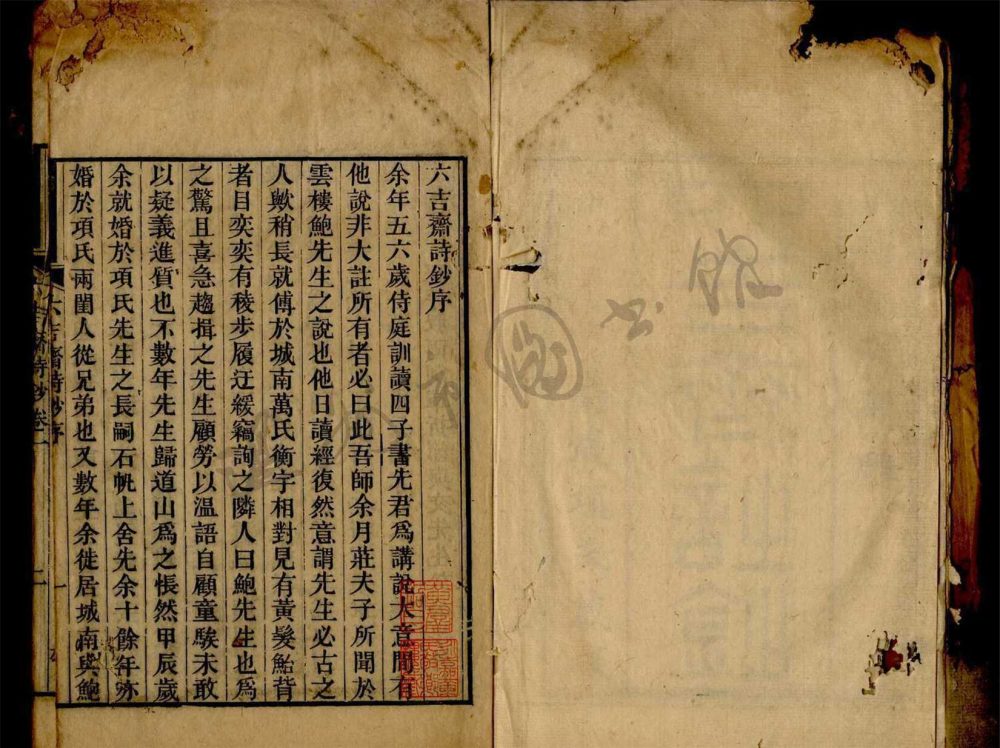 六吉齋詩鈔序
余年五六歲侍庭訓讀四子書先君爲講說大意間有
他說非大註所有者必曰此吾師余月莊夫子所聞於
雲樓鮑先生之說也他日讀經復然意謂先生必古之
人歟稍長就傅於城南萬氏衡宇相對見有黃髮鮐背
者目奕奕有稜步履迂緩竊詢之隣人曰鮑先生也爲
之驚且喜急趨揖之先生顧勞以温語自顧童騃未敢
以疑義進質也不數年先生歸道山爲之悵然甲辰歲
余就婚於項氏先生之長嗣石帆上舍先余十餘年亦
婚於項氏兩閨人從兄弟也又數年余徙居城南與鮑
六吉齋詩鈔序
一
圖書館